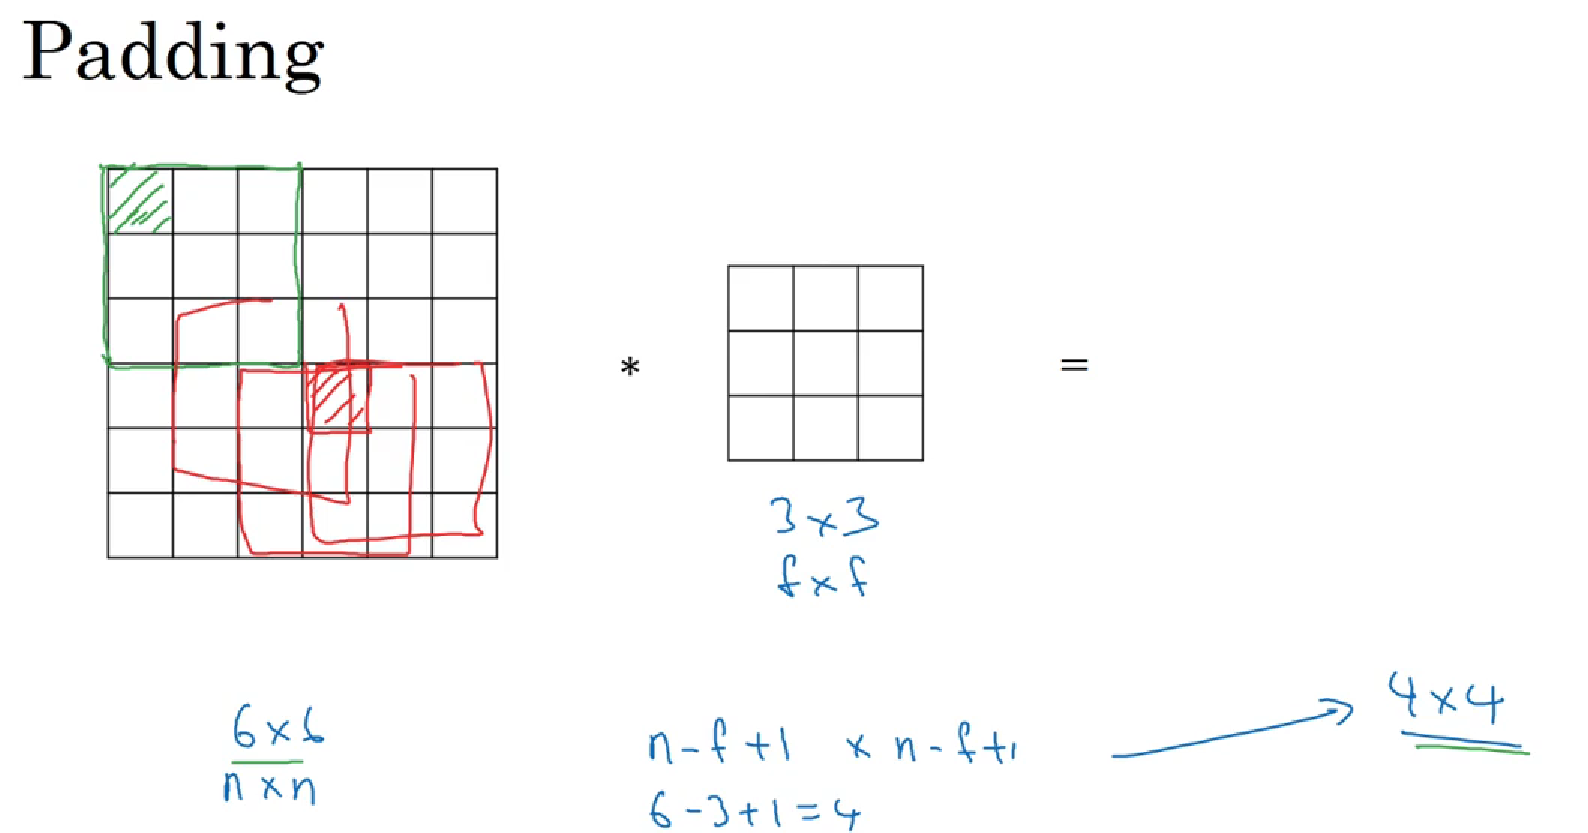 Padding
* =
3 x 3
f x f
6 x 6
n x n
n - f + 1 x n - f + 1
6 - 3 + 1 = 4
4 x 4